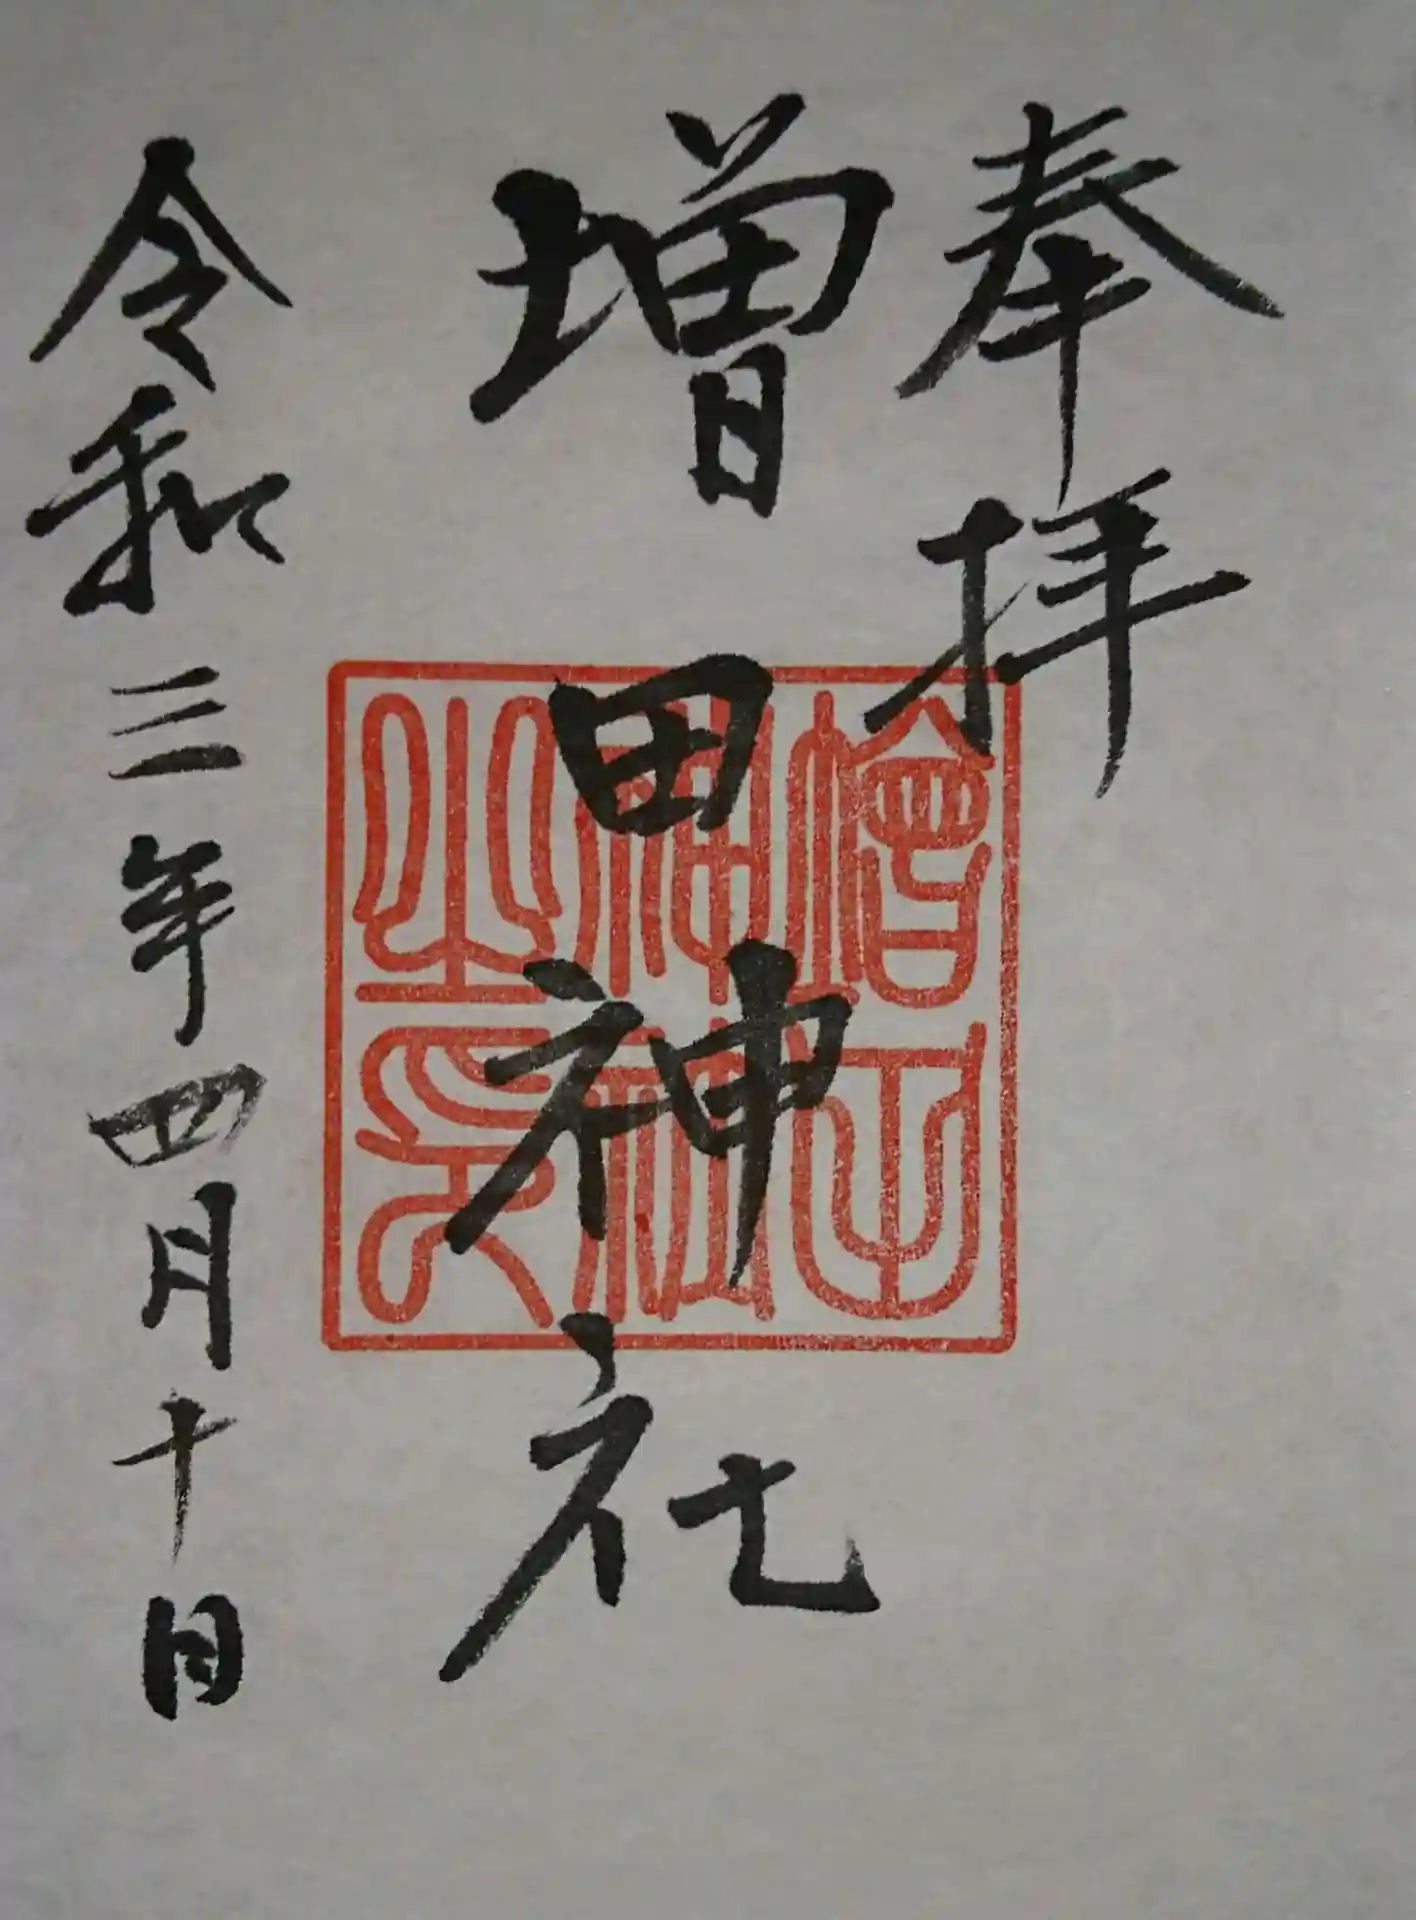 奉拝
増田神社
神社
之印
令和三年四月十日